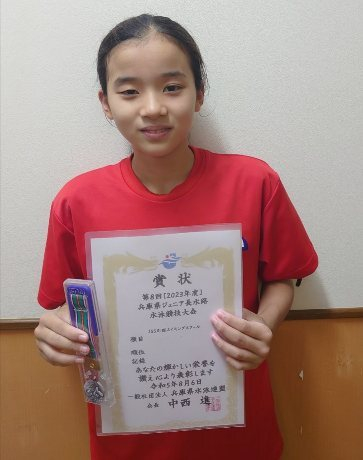 賞状
第8回〔2023年度〕
兵庫県ジュニア長水路
水泳競技大会
種目
順位
記録
あなたの輝かしい栄誉を
讃えにより表彰します
令和5年8月6日
一般社団法人 兵庫県水泳連盟
会長 中西 進